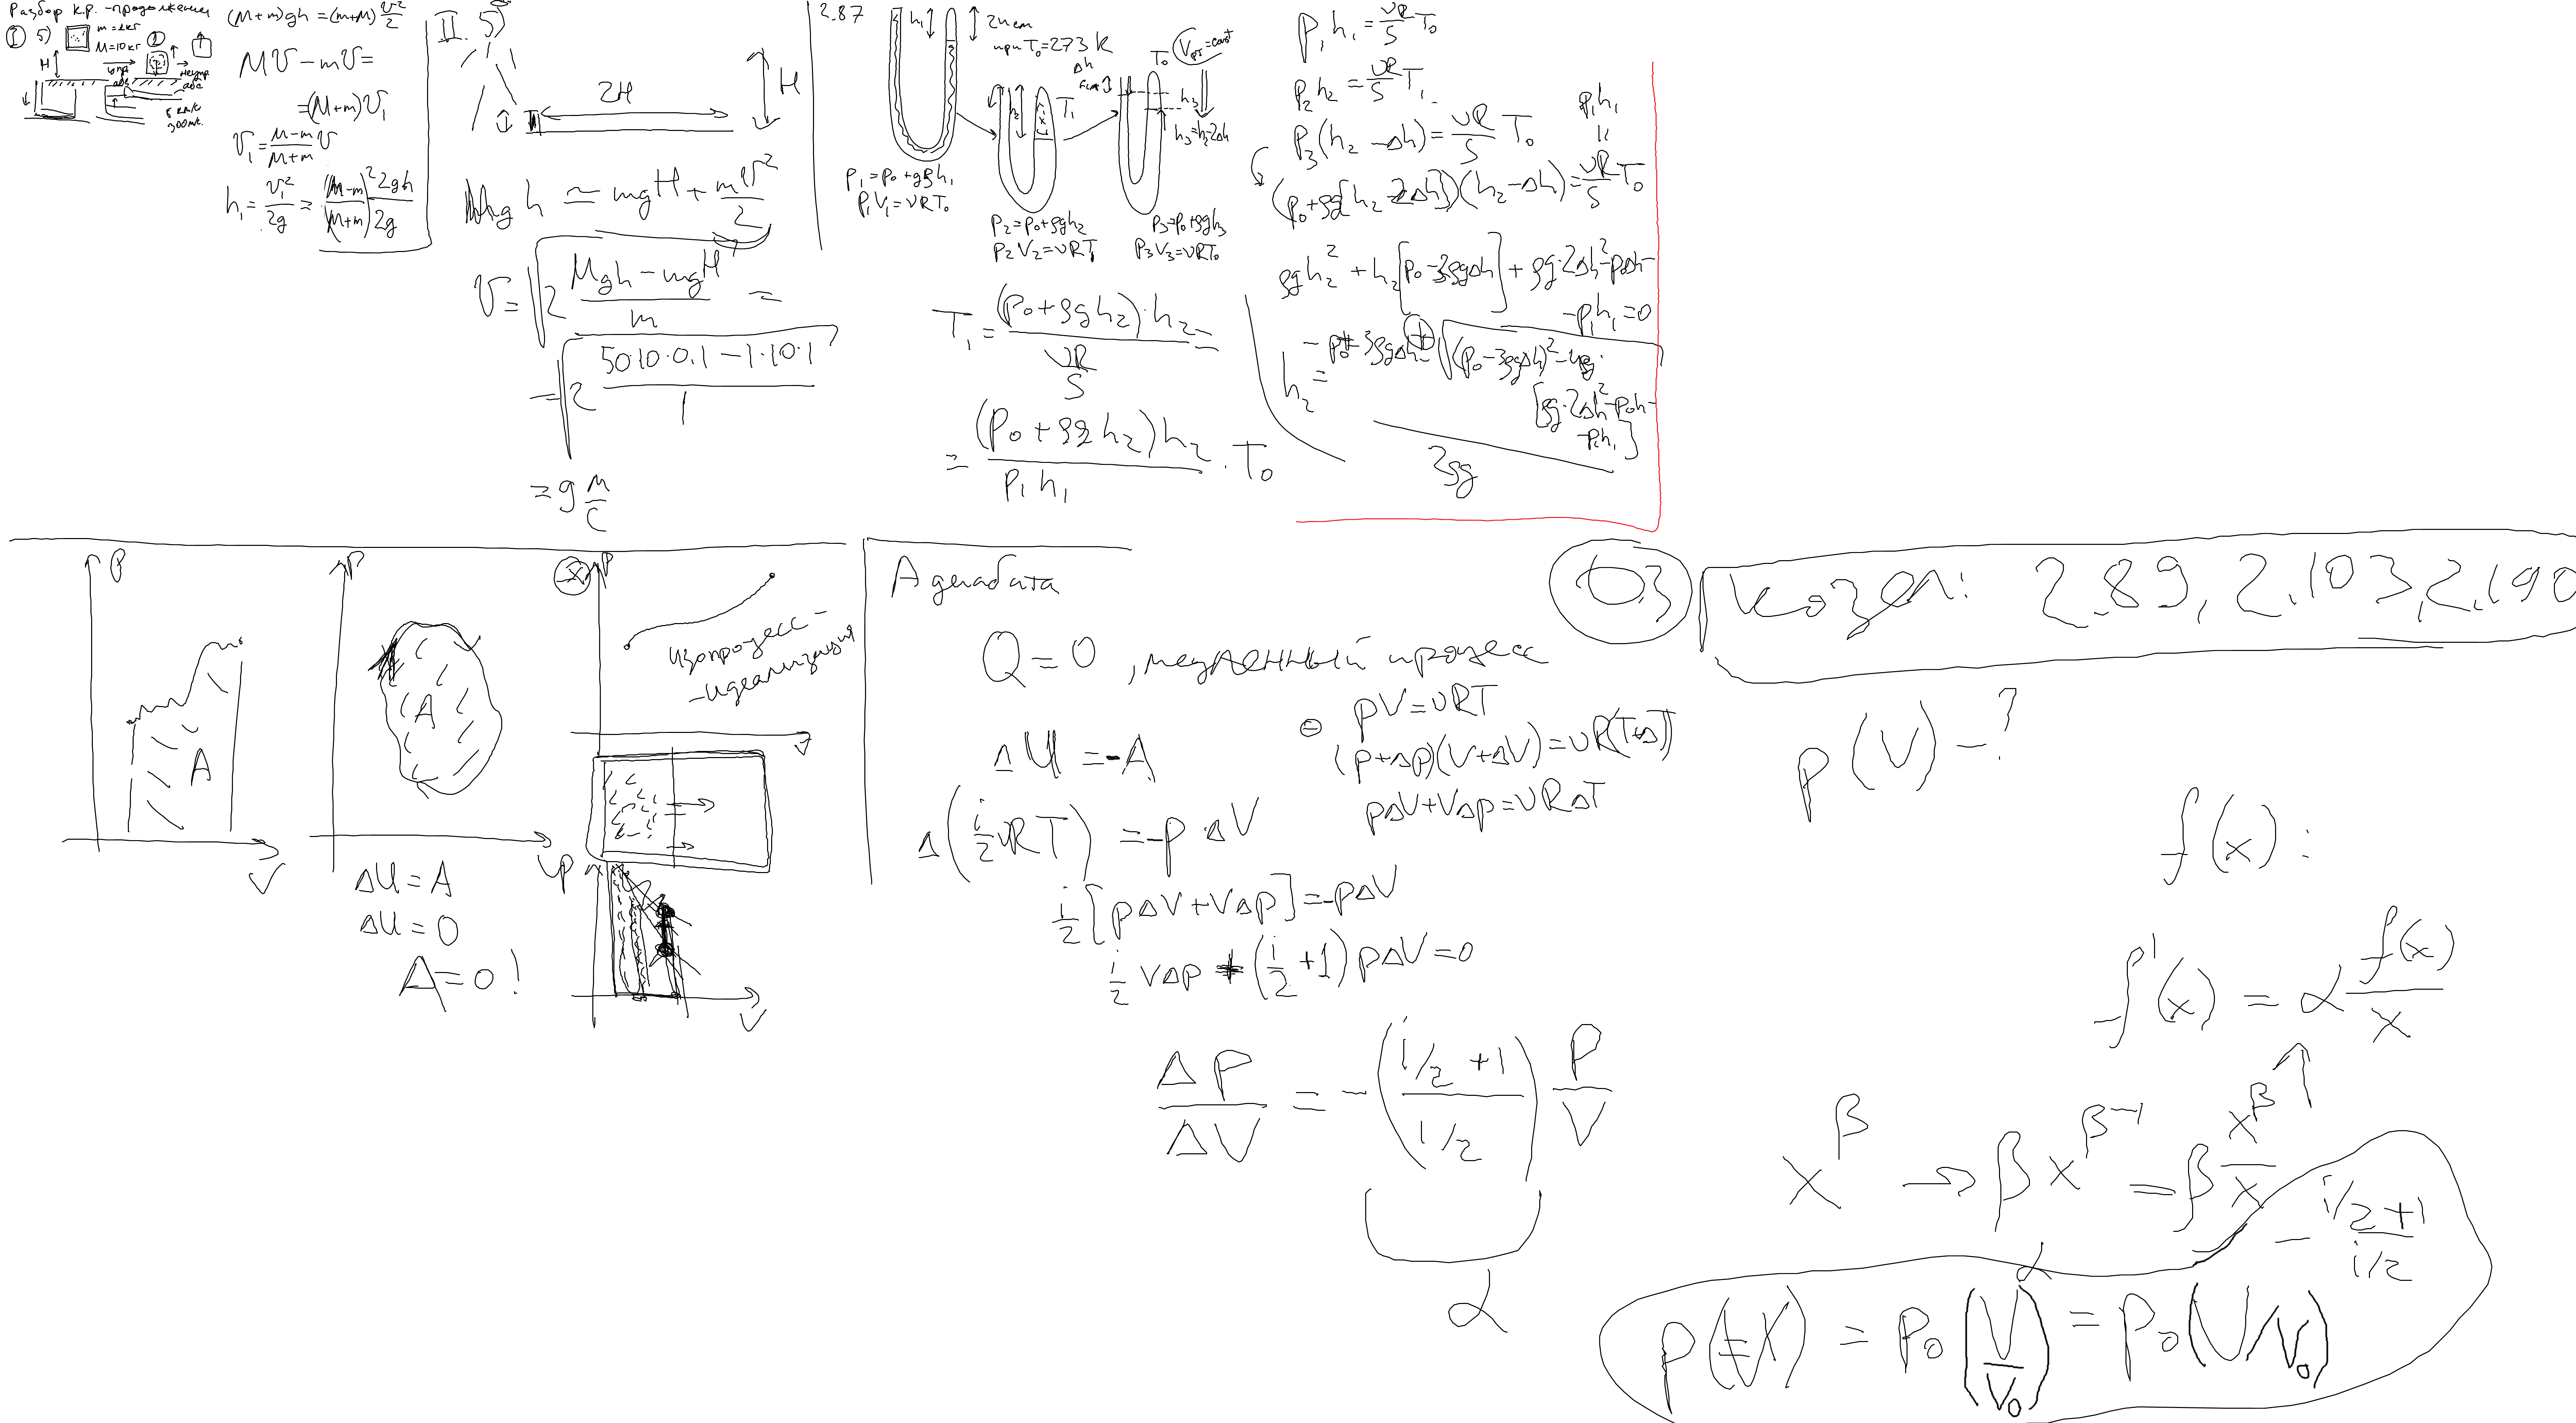 Разбор к.р. - продолжение
I 5)
m = 2кг
M = 10кг
H
(M+m)gh = (m+M) v²/2
Mv - mv =
= (M+m)v₁
v₁ = (M-m)/(M+m) v
h₁ = v₁²/2g = (M-m)² 2gh / (M+m)² 2g
II. 5)
2H
H
Mgh = mgH + mv²/2
v = √(2 (Mgh - mgH)/m) =
= √(2 (50·10·0.1 - 1·10·1)/1)
= 9 м/с
2.87
h₁
при T₀ = 273 K
T₁
Δh
T₀
h₃
p₁ = p₀ + gρh₁
p₁V₁ = νRT₀
p₂ = p₀ + ρgh₂
p₂V₂ = νRT₁
p₃ = p₀ + ρgh₃
p₃V₃ = νRT₀
h₃ = h₂ - 2Δh
T₁ = (p₀ + ρgh₂)·h₂ / (νR/S) =
= (p₀ + ρgh₂)h₂ / p₁h₁ · T₀
p₁h₁ = νR/S T₀
p₂h₂ = νR/S T₁
p₃(h₂ - Δh) = νR/S T₀
p₁h₁
(p₀ + ρg[h₂ - 2Δh])(h₂ - Δh) = νR/S T₀
ρgh₂² + h₂[p₀ - 3ρgΔh] + ρg·2Δh² - p₀Δh -
- p₁h₁ = 0
h₂ = (-p₀ + 3ρgΔh + √((p₀ - 3ρgΔh)² - 4ρg·
[ρg·2Δh² - p₀h -
- p₁h₁]
2ρg
p
A
V
p
A
V
ΔU = A
ΔU = 0
A = 0!
p
изопроцесс -
- идеализация
V
p
V
Адиабата
Q = 0, медленный процесс
ΔU = -A
Δ(i/2 νRT) = -pΔV
i/2 [pΔV + VΔp] = -pΔV
i/2 VΔp + (i/2 + 1)pΔV = 0
ΔP/ΔV = -((i/2 + 1)/(i/2)) P/V
α
pV = νRT
(p+Δp)(V+ΔV) = νR(T+ΔT)
pΔV + VΔp = νRΔT
ДЗ
Козел: 2.89, 2.103, 2.190
p(V) - ?
f(x):
f'(x) = α f(x)/x
x^β → βx^(β-1) = β x^β/x
p(V) = p₀(V/V₀)^α = p₀(V/V₀)^(-(i/2+1)/(i/2))